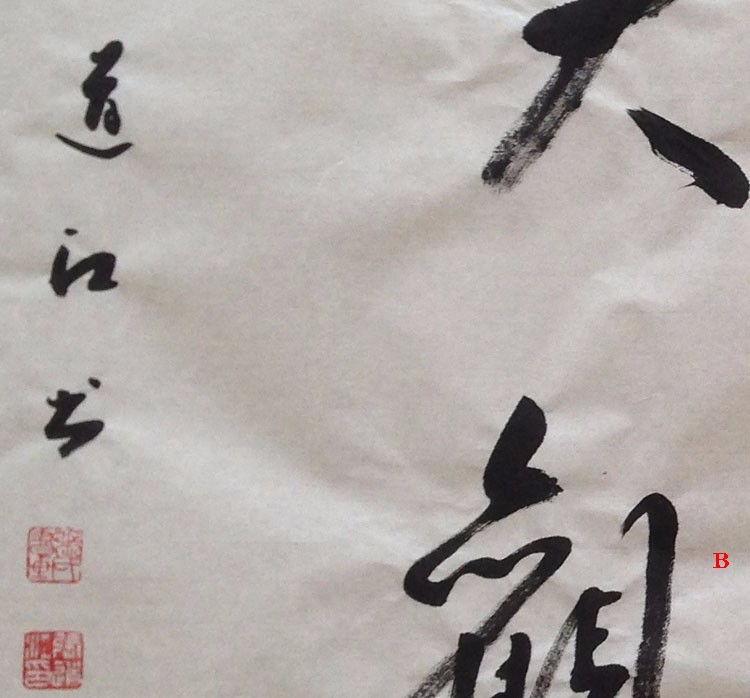 大觀
道江书
B